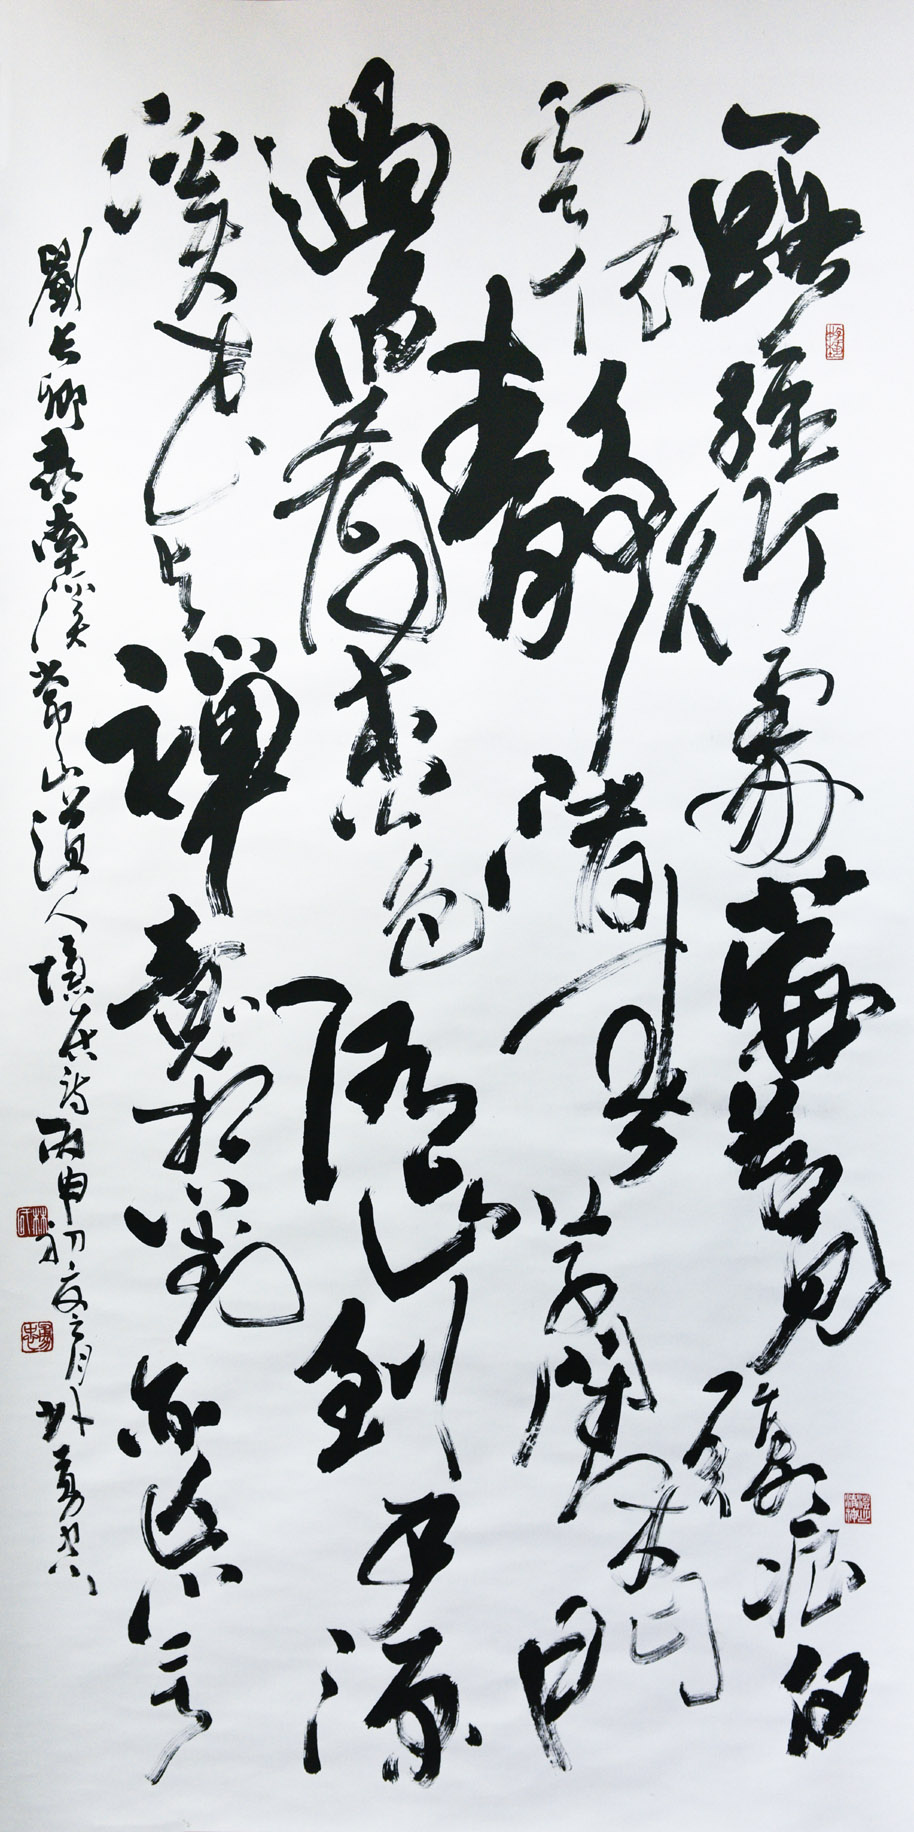 一路經行處莓苔見履痕白
雲依靜渚春草閉閑門
過雨看松色隨山到水源
溪花與禪意相對亦忘言
劉長卿尋南溪常山道人隱居詩丙申初夏之月林勇忠